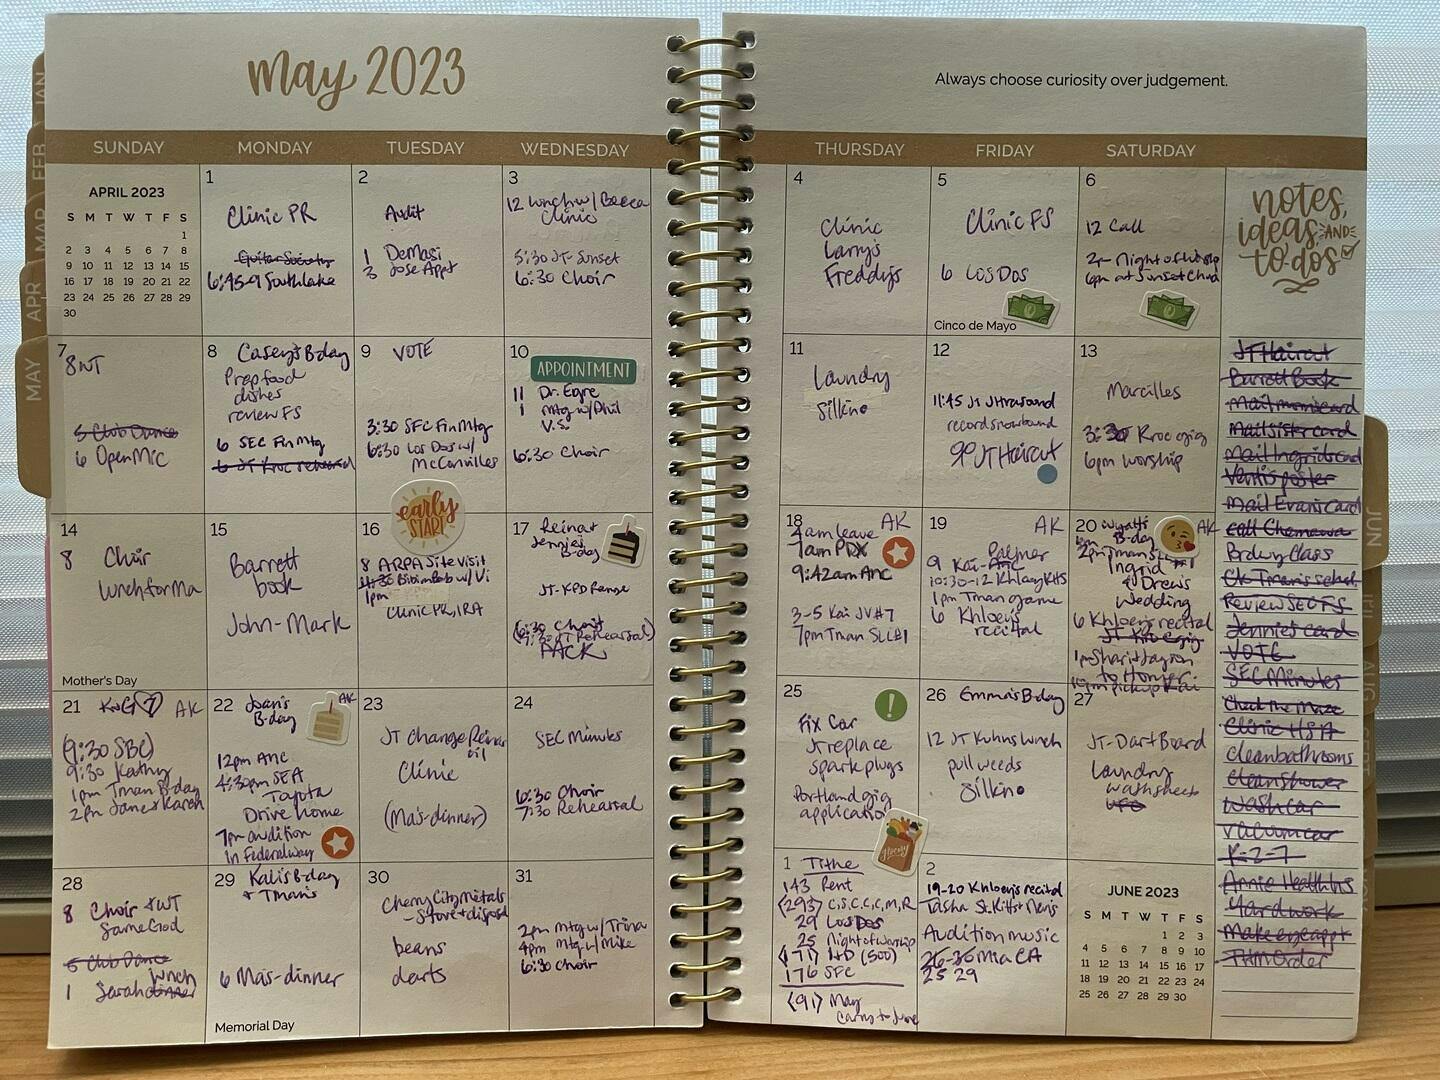 may 2023
Always choose curiosity over judgement.
JAN
FEB
MAR
APR
MAY
SUNDAY MONDAY TUESDAY WEDNESDAY THURSDAY FRIDAY SATURDAY
notes,
ideas AND
to-dos
APRIL 2023
S M T W T F S
1
2 3 4 5 6 7 8
9 10 11 12 13 14 15
16 17 18 19 20 21 22
23 24 25 26 27 28 29
30
1
Clinic PR
Guitar Society
6:45-9 Southlake
2
Audit
1 DeMasi
3 Jose Appt
3
12 lunch w/ Becca
Clinic
5:30 JT-Sunset
6:30 Choir
4
Clinic
Larry's
Freddy's
5
Clinic FS
6 Los Dos
Cinco de Mayo
6
12 Call
2- Night of Worship
6pm at Sunset Church
7
8 WT
5 Club Dance
6 Open Mic
8 Casey's B-day
Prep food
dishes
review FS
6 SEC Fin Mtg
6 JT Kroc rehearsal
9 VOTE
3:30 SFC Fin Mtg
6:30 Los Dos w/
McConvilles
early
START
10
APPOINTMENT
11 Dr. Eyre
1 Mtg w/Phil
V.S.
6:30 Choir
11
Laundry
Silkno
12
11:45 JT Ultrasound
record snowbound
JT Haircut
13
Marcilles
3:30 Kroc gig
6pm Worship
14
8 Choir
lunch for Ma
Mother's Day
15
Barrett
book
John-Mark
16
8 ARPA Site Visit
11:30 Bibimbob w/ Vi
1pm
Clinic PR, IRA
17 Reina &
Jennie's
B-day
JT-KPD Range
6:30 Choir
(7:30 JT Rehearsal)
PACK
18 AK
4am leave
7am PDX
9:42am ANC
3-5 Kai JV #7
7pm Tman SLC#1
19 AK
Palmer
9 Kai-ANC
10:30-12 Khloey KHS
1pm Tman game
6 Khloey's
recital
20 Wyatt's AK
B-day
Ingrid
& Drew's
Wedding
6 Khloey's recital
JT Kroc gig
1pm Shari + Jayson
to Homer
pickup Kai
21 K&G AK
(9:30 SBC)
9:30 Kathy
1pm Tman B-day
2pm James Karen
22 Joan's AK
B-day
12pm ANC
4:30pm SEA
Toyota
Drive home
7pm audition
in Federalway
23
JT change Reina
oil
Clinic
(Mas-dinner)
24
SEC Minutes
6:30 Choir
7:30 Rehearsal
25
!
Fix Car
JT replace
spark plugs
Portland gig
application
26 Emma's B-day
12 JT Kuhns lunch
pull weeds
Silkno
27
JT-Dart Board
Laundry
wash sheets
28
8 Choir & WT
Same God
5 Club Dance
lunch
1 Sarah dinner
29 Kali's B-day
& Tman's
6 Mas-dinner
Memorial Day
30
Cherry City Metals
- Store + disposal
beans
darts
31
2pm Mtg w/ Trina
4pm Mtg w/ Mike
6:30 Choir
1 Tithe
143 Rent
<293> C, S, C, C, C, M, R
29 Los Dos
25 Night of Worship
(500)
176 SFC
<91> May
carry to June
2
19-20 Khloey's recital
Tasha St. Kitts + Nevis
Audition music
26-30 Mia CA
25 29
JUNE 2023
S M T W T F S
1 2 3
4 5 6 7 8 9 10
11 12 13 14 15 16 17
18 19 20 21 22 23 24
25 26 27 28 29 30
JT Haircut
Barrett Book
Mail moms card
Mail sister card
Mail Ingrids card
Ventis poster
Mail Evan's Card
Call Chemawa
Brdwy Class
Ck Tman's sched.
Review SEC FS
Jennie's card
VOTE
SEC Minutes
Check the Maze
Clinic HSA
Clean bathrooms
Clean shower
Wash car
Vacuum car
K-2-7
Yard work
Make eye appt
THM Order
JUN
JUL
AUG
SEPT